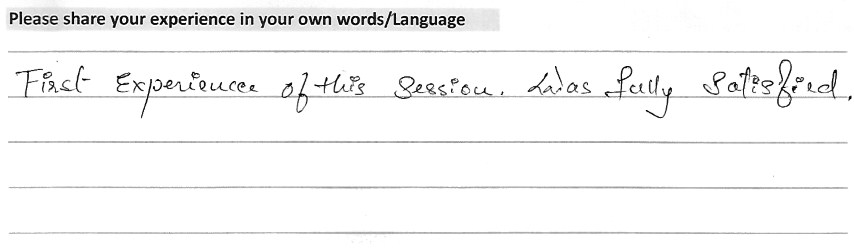 Please share your experience in your own words/Language
First Experiencee of this Session. Was fully Satisfied.